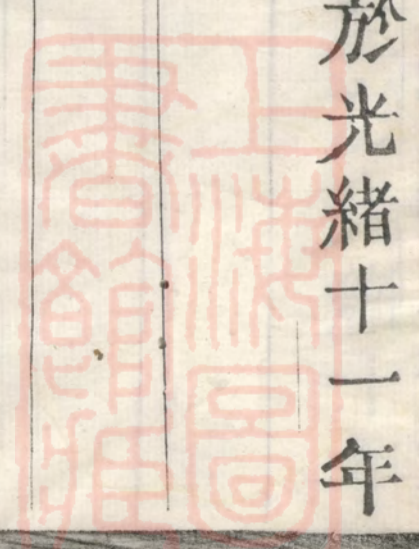 於光緒十一年
上海圖
書館藏